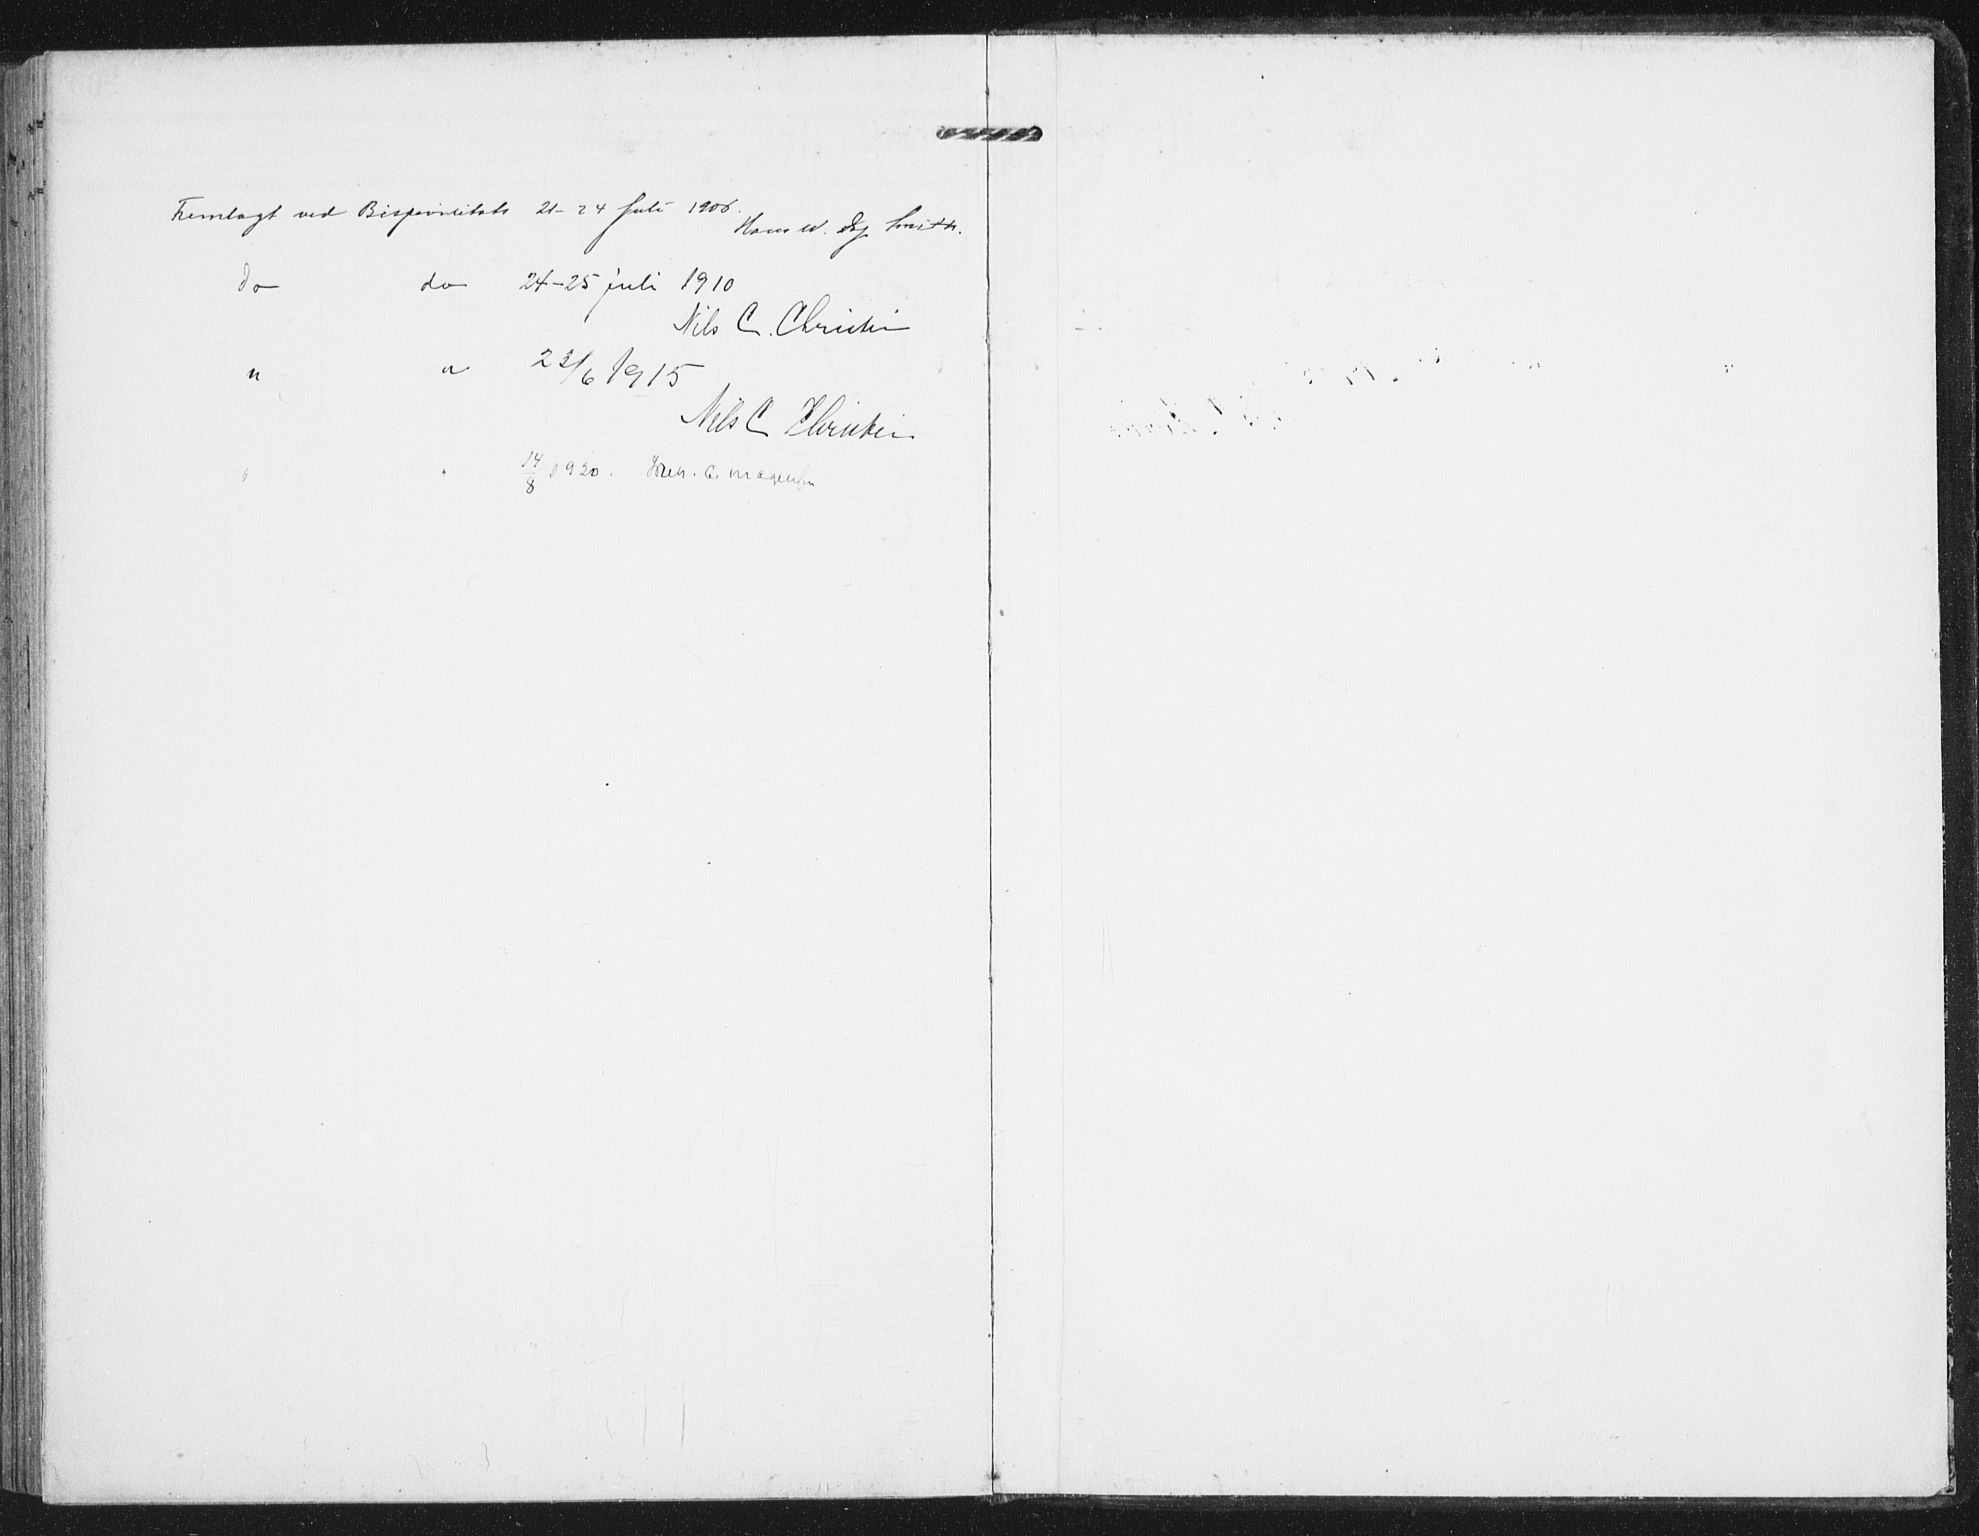 Fremlagt ved Bispevisitats 21-24 Juli 1906.
Hans W. Smith.
Do do 24-25 juli 1910
Nils C. Christie
" " 23/6 1915
Nils C Christie
" " 14/8 1920.